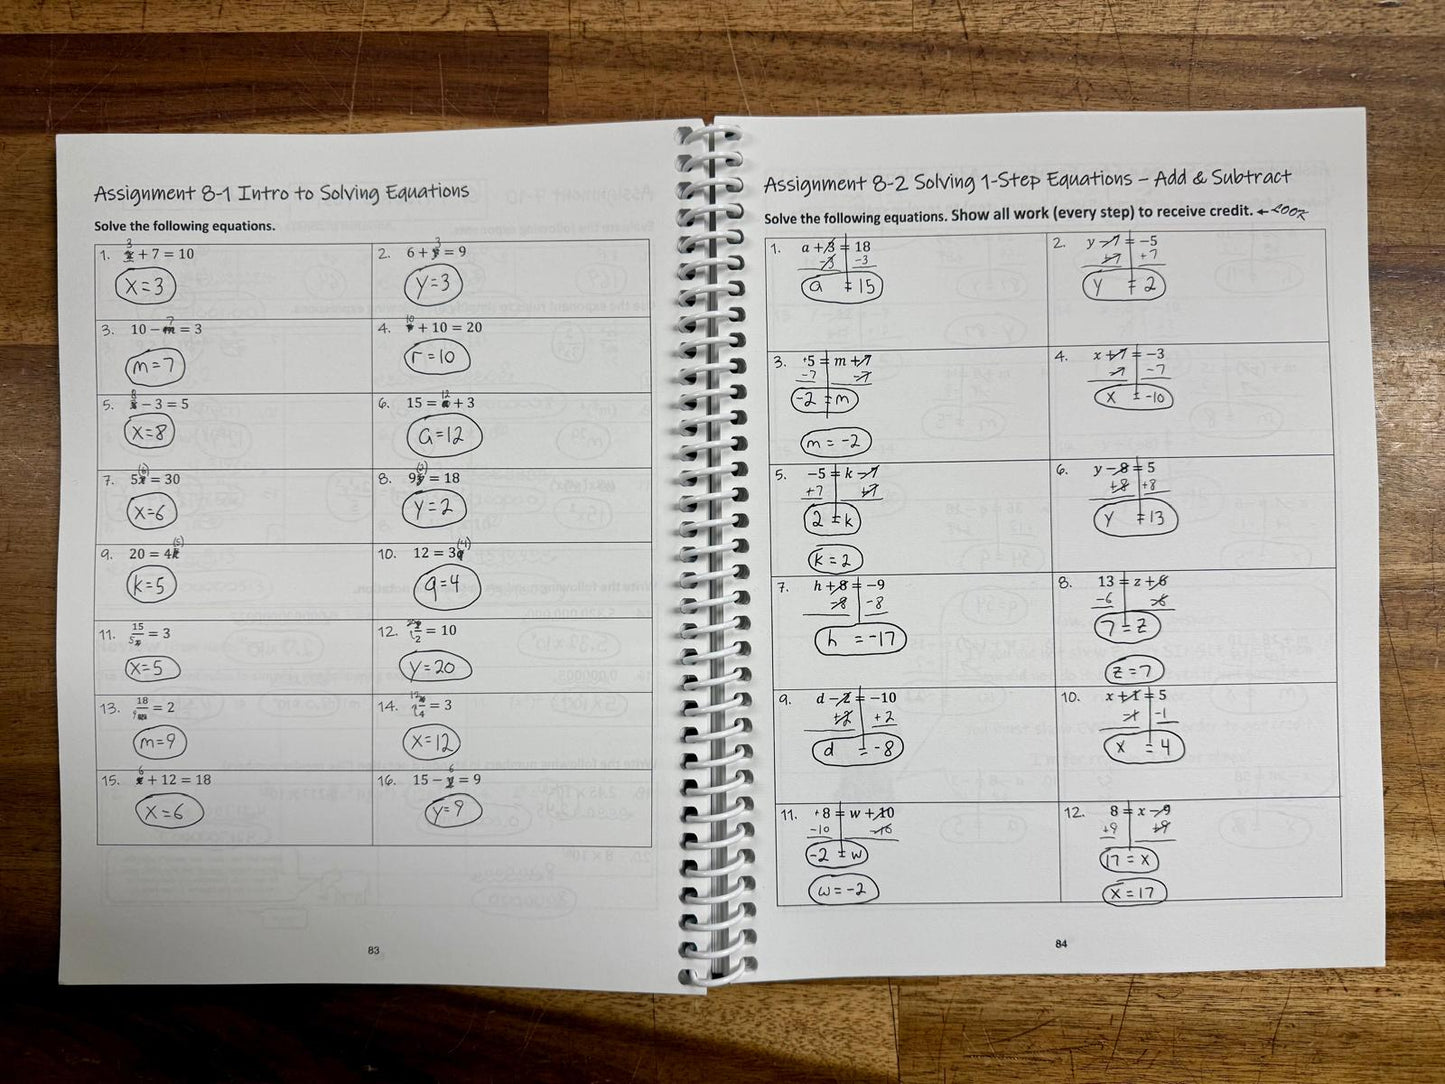 Assignment 8-1 Intro to Solving Equations
Solve the following equations.
1. + 7 = 10
3
x=3
2. 6 + = 9
3
y=3
3. 10 − m = 3
7
m=7
4. + 10 = 20
10
r=10
5. − 3 = 5
8
x=8
6. 15 = a + 3
12
a=12
7. 5 = 30
(6)
x=6
8. 9 = 18
(2)
y=2
9. 20 = 4k
(5)
k=5
10. 12 = 3q
(4)
q=4
11. 15 = 3
5
x=5
12. = 10
2
y=20
13. 18 = 2
9
m=9
14. = 3
12
4
x=12
15. + 12 = 18
6
x=6
16. 15 − = 9
6
y=9
83
Assignment 8-2 Solving 1-Step Equations – Add & Subtract
Solve the following equations. Show all work (every step) to receive credit. ←LOOK
1. a + 3 = 18
-3 -3
a = 15
2. y − 7 = −5
+7 +7
y = 2
3. +5 = m + 7
-7 -7
-2 = m
m = -2
4. x + 7 = −3
-7 -7
x = -10
5. −5 = k − 7
+7 +7
2 = k
k = 2
6. y − 8 = 5
+8 +8
y = 13
7. h + 8 = −9
-8 -8
h = -17
8. 13 = z + 6
-6 -6
7 = z
z = 7
9. d − 2 = −10
+2 +2
d = -8
10. x + 1 = 5
-1 -1
x = 4
11. +8 = w + 10
-10 -10
-2 = w
w = -2
12. 8 = x − 9
+9 +9
17 = x
x = 17
84